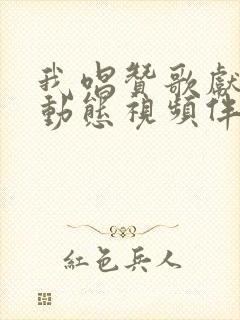 我唱贊歌獻
動態視頻伴
紅色兵人